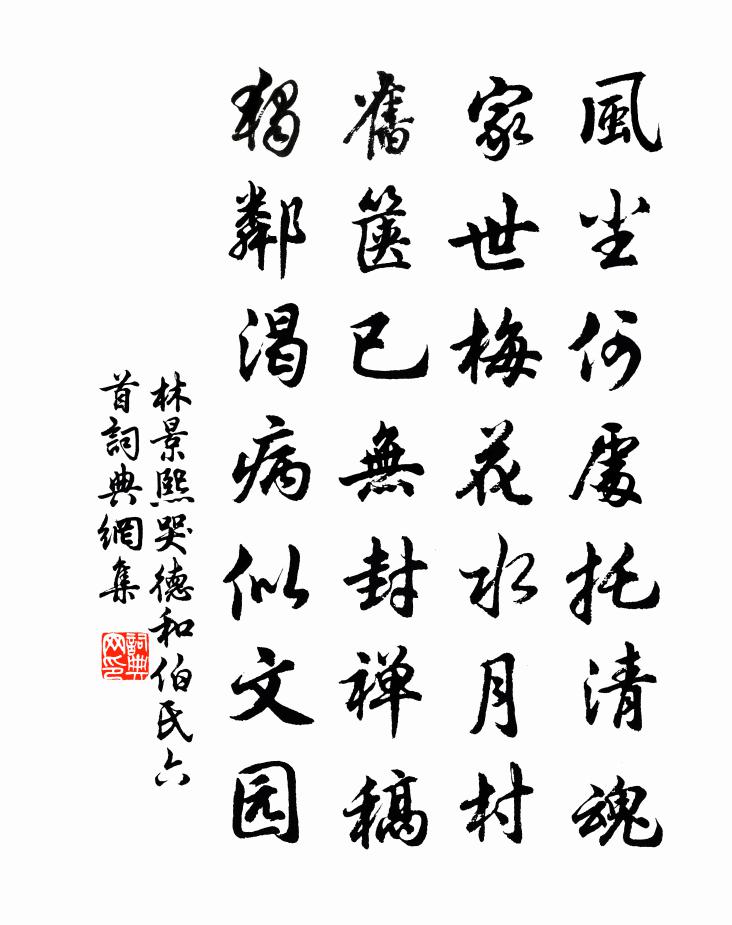 風尘何處托清魂
家世梅花水月村
舊箧已無封禅稿
鄰渴病似文园
林景熙哭德和伯氏六
首詞典網集
詞典